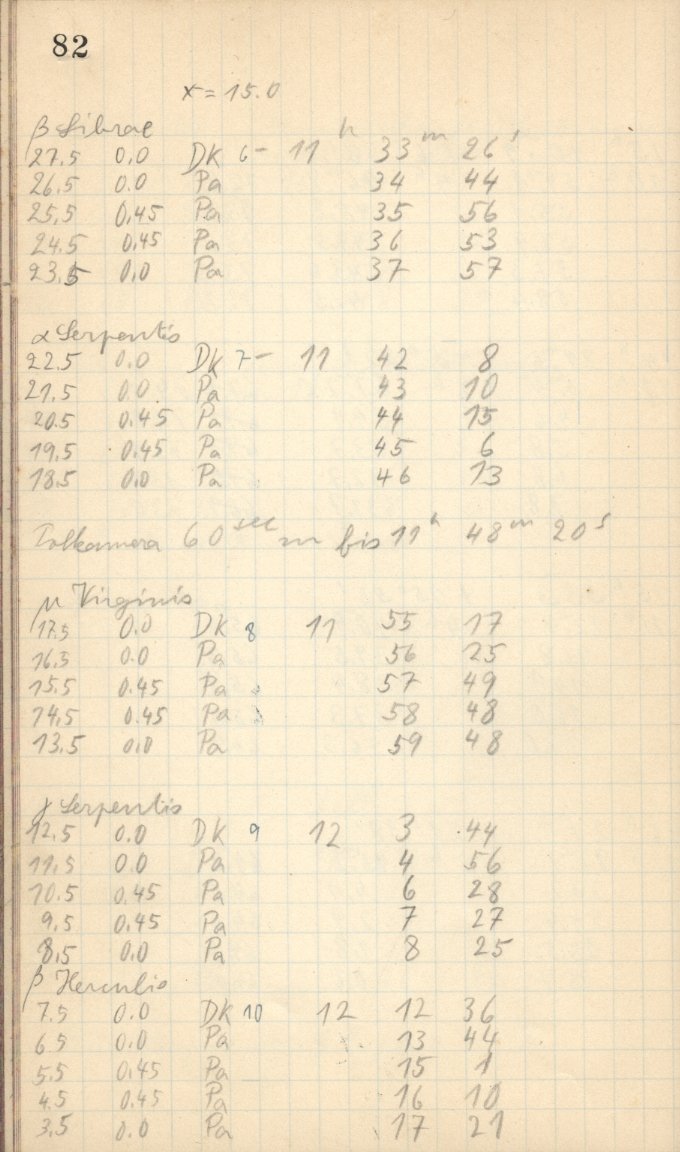 82
x = 15.0
β Librae
27,5 0,0 DK 6- 11 h 33 m 26 s
26,5 0.0 Pa 34 44
25,5 0,45 Pa 35 56
24.5 0,45 Pa 36 53
23,5 0,0 Pa 37 57
α Serpentis
22.5 0.0 DK 7- 11 42 8
21,5 0.0 Pa 43 10
20.5 0.45 Pa 44 15
19,5 0.45 Pa 45 6
18.5 0,0 Pa 46 13
Polkamera 60 sec m bis 11 h 48 m 20 s
μ Virginis
17.5 0.0 DK 8 11 55 17
16,5 0.0 Pa 56 25
15.5 0.45 Pa 57 49
14,5 0.45 Pa 58 48
13,5 0,0 Pa 59 48
γ Serpentis
12.5 0.0 DK 9 12 3 44
11,5 0.0 Pa 4 56
10,5 0,45 Pa 6 28
9,5 0.45 Pa 7 27
8,5 0.0 Pa 8 25
β Herculis
7.5 0.0 DK 10 12 12 36
6.5 0.0 Pa 13 44
5.5 0.45 Pa 15 1
4.5 0.45 Pa 16 10
3,5 0.0 Pa 17 21